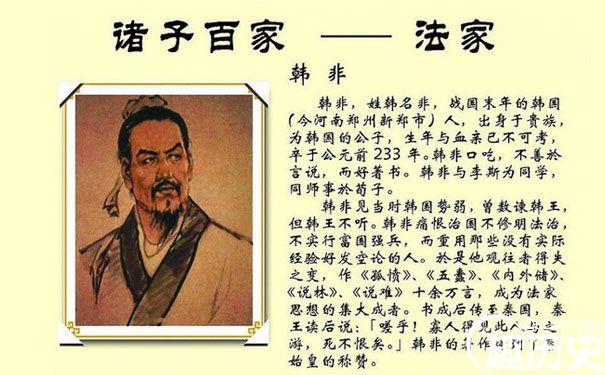 诸子百家 —— 法家
韩 非
韩非，姓韩名非，战国末年的韩国
(今河南郑州新郑市）人，出身于贵族，
为韩国的公子，生年与血亲已不可考，
卒于公元前 233 年。韩非口吃，不善於
言说，而好著书。韩非与李斯为同学，
同师事於荀子。
韩非见当时韩国势弱，曾数谏韩王，
但韩王不听。韩非痛恨治国不修明法治，
不实行富国强兵，而重用那些没有实际
经验好发空论的人。於是他观往者得失
之变，作《孤愤》、《五蠹》、《内外储》、
《说林》、《说难》十余万言，成为法家
思想的集大成者。书成后传至秦国，秦
王读后说：「嗟乎！寡人得见此人与之
游，死不恨矣。」韩非的著作得到了秦
始皇的称赞。
趣历史